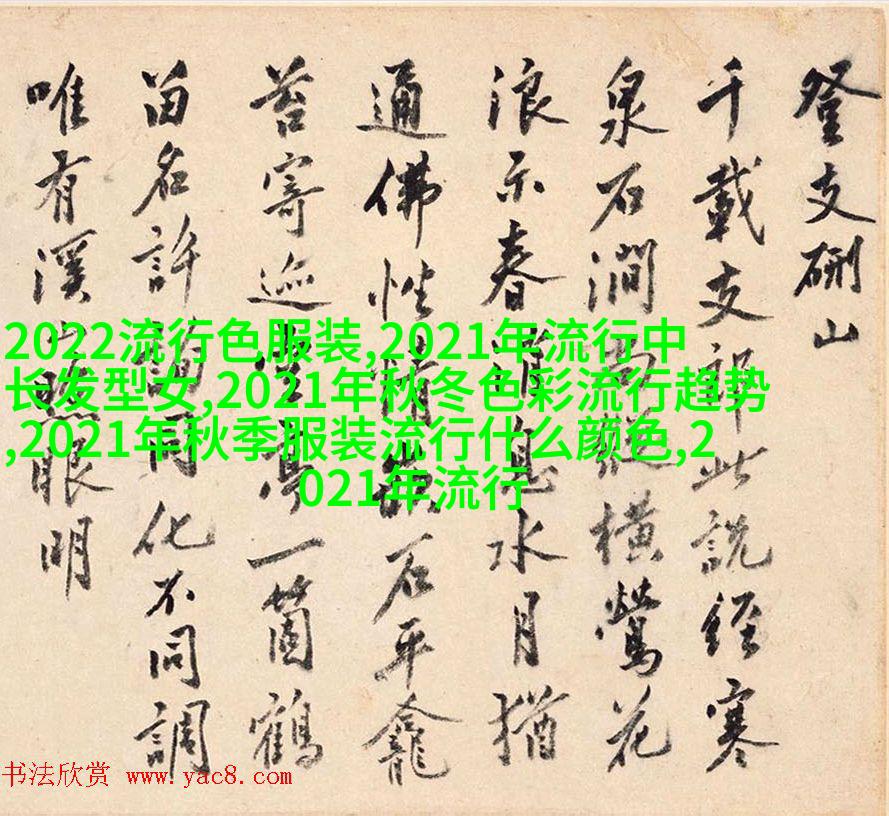 登支硎山
千載支郎此說經寒
泉石澗縱橫鶯花
浪示春消息水月猶
通佛性情石平龕
苔寄迹亭一箇鶴
留名許詢同化不同調
唯有溪山照眼明
2022流行色服装,2021年流行中
长发型女,2021年秋冬色彩流行趋势
,2021年秋季服装流行什么颜色,2
021年流行
书法欣赏 www.yac8.com